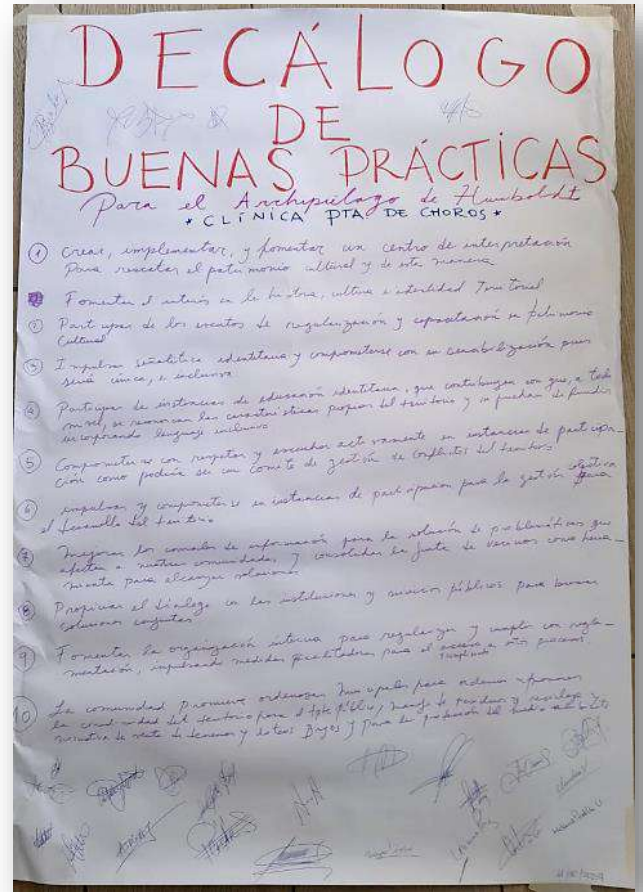 DECÁLOGO
DE
BUENAS PRÁCTICAS
Para el Archipiélago de Humboldt
* CLÍNICA PTA DE CHOROS *
1 Crear, implementar, y fomentar un centro de interpretación
Para rescatar el patrimonio cultural y de esta manera
Fomentar el interés en la historia, cultura e identidad Territorial
2 Participar de los eventos de regularización y capacitación en patrimonio
Cultural
3 Impulsar señalética identitaria y comprometerse con su sensibilización pues
sería única, e inclusiva
4 Participar de instancias de educación identitaria, que contribuyan con que, a todo
nivel, se reconozcan las características propias del territorio y se puedan difundir
incorporando lenguaje inclusivo
5 Comprometerse con respetar y escuchar activamente en instancias de participa-
ción como podría ser un comité de gestión de conflictos del territorio
6 impulsar y comprometerse en instancias de participación para la gestión colectiva
el desarrollo del territorio
7 Mejorar los canales de información para la solución de problemáticas que
afecten a nuestras comunidades, y consolidar la junta de vecinos como herra-
mienta para alcanzar soluciones
8 Propiciar el diálogo con las instituciones y servicios públicos para buscar
soluciones conjuntas
9 Fomentar la organización interna para regularizar y cumplir con regla-
mentación, impulsando medidas facilitadoras para el acceso a estos procesos
10 La comunidad promueve ordenanzas municipales para ordenar
la del territorio para el público, manejo de residuos y reciclaje y
normativa de venta de terrenos y loteos Brujos y para la protección del medio ambiente